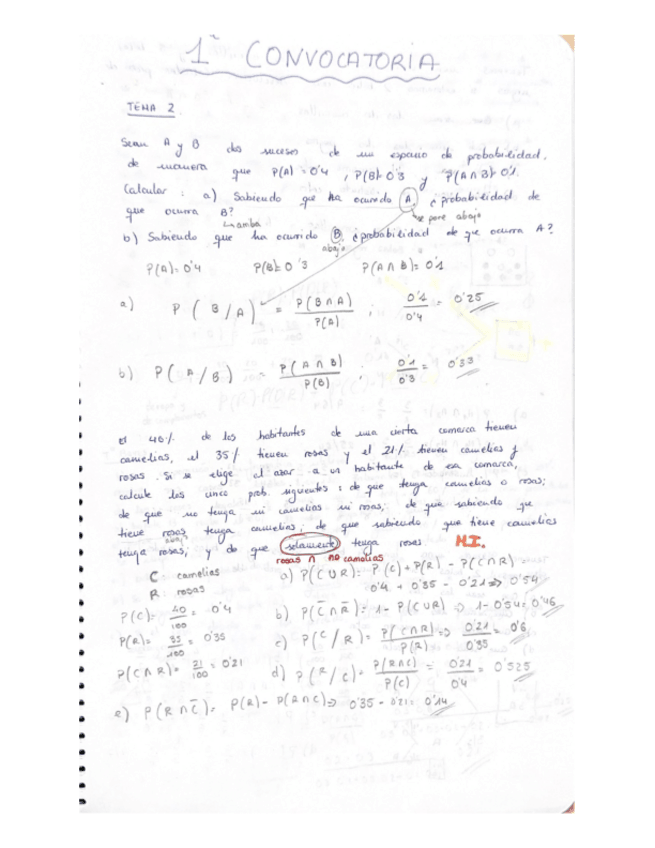 1ª CONVOCATORIA
TEMA 2
Sean A y B dos sucesos de un espacio de probabilidad,
de manera que P(A) = 0'4, P(B) = 0'3 y P(A ∩ B) = 0'1.
Calcular: a) Sabiendo que ha ocurrido A. ¿probabilidad de
que ocurra B?
se pone abajo
↳ arriba
b) Sabiendo que ha ocurrido B ¿probabilidad de que ocurra A?
abajo
P(A) = 0'4 P(B) = 0'3 P(A ∩ B) = 0'1
a) P(B/A) = P(B ∩ A) / P(A) ; 0'1 / 0'4 = 0'25
b) P(A/B) = P(A ∩ B) / P(B) 0'1 / 0'3 = 0'33
El 40% de los habitantes de una cierta comarca tienen
camelias, el 35% tienen rosas y el 21% tienen camelias y
rosas. Si se elige al azar a un habitante de esa comarca,
calcule las cinco prob. siguientes: de que tenga camelias o rosas;
de que no tenga ni camelias ni rosas; de que sabiendo que
tiene rosas tenga camelias; de que sabiendo que tiene camelias
abajo
tenga rosas; y de que solamente tenga rosas M.I.
rosas ∩ no camelias
C: camelias
R: rosas
P(C) = 40/100 = 0'4
P(R) = 35/100 = 0'35
P(C ∩ R) = 21/100 = 0'21
a) P(C ∪ R) = P(C) + P(R) - P(C ∩ R) =
0'4 + 0'35 - 0'21 => 0'54
b) P(C̄ ∩ R̄) = 1 - P(C ∪ R) => 1 - 0'54 = 0'46
c) P(C/R) = P(C ∩ R) / P(R) => 0'21 / 0'35 = 0'6
d) P(R/C) = P(R ∩ C) / P(C) = 0'21 / 0'4 = 0'525
e) P(R ∩ C̄) = P(R) - P(R ∩ C) => 0'35 - 0'21 = 0'14